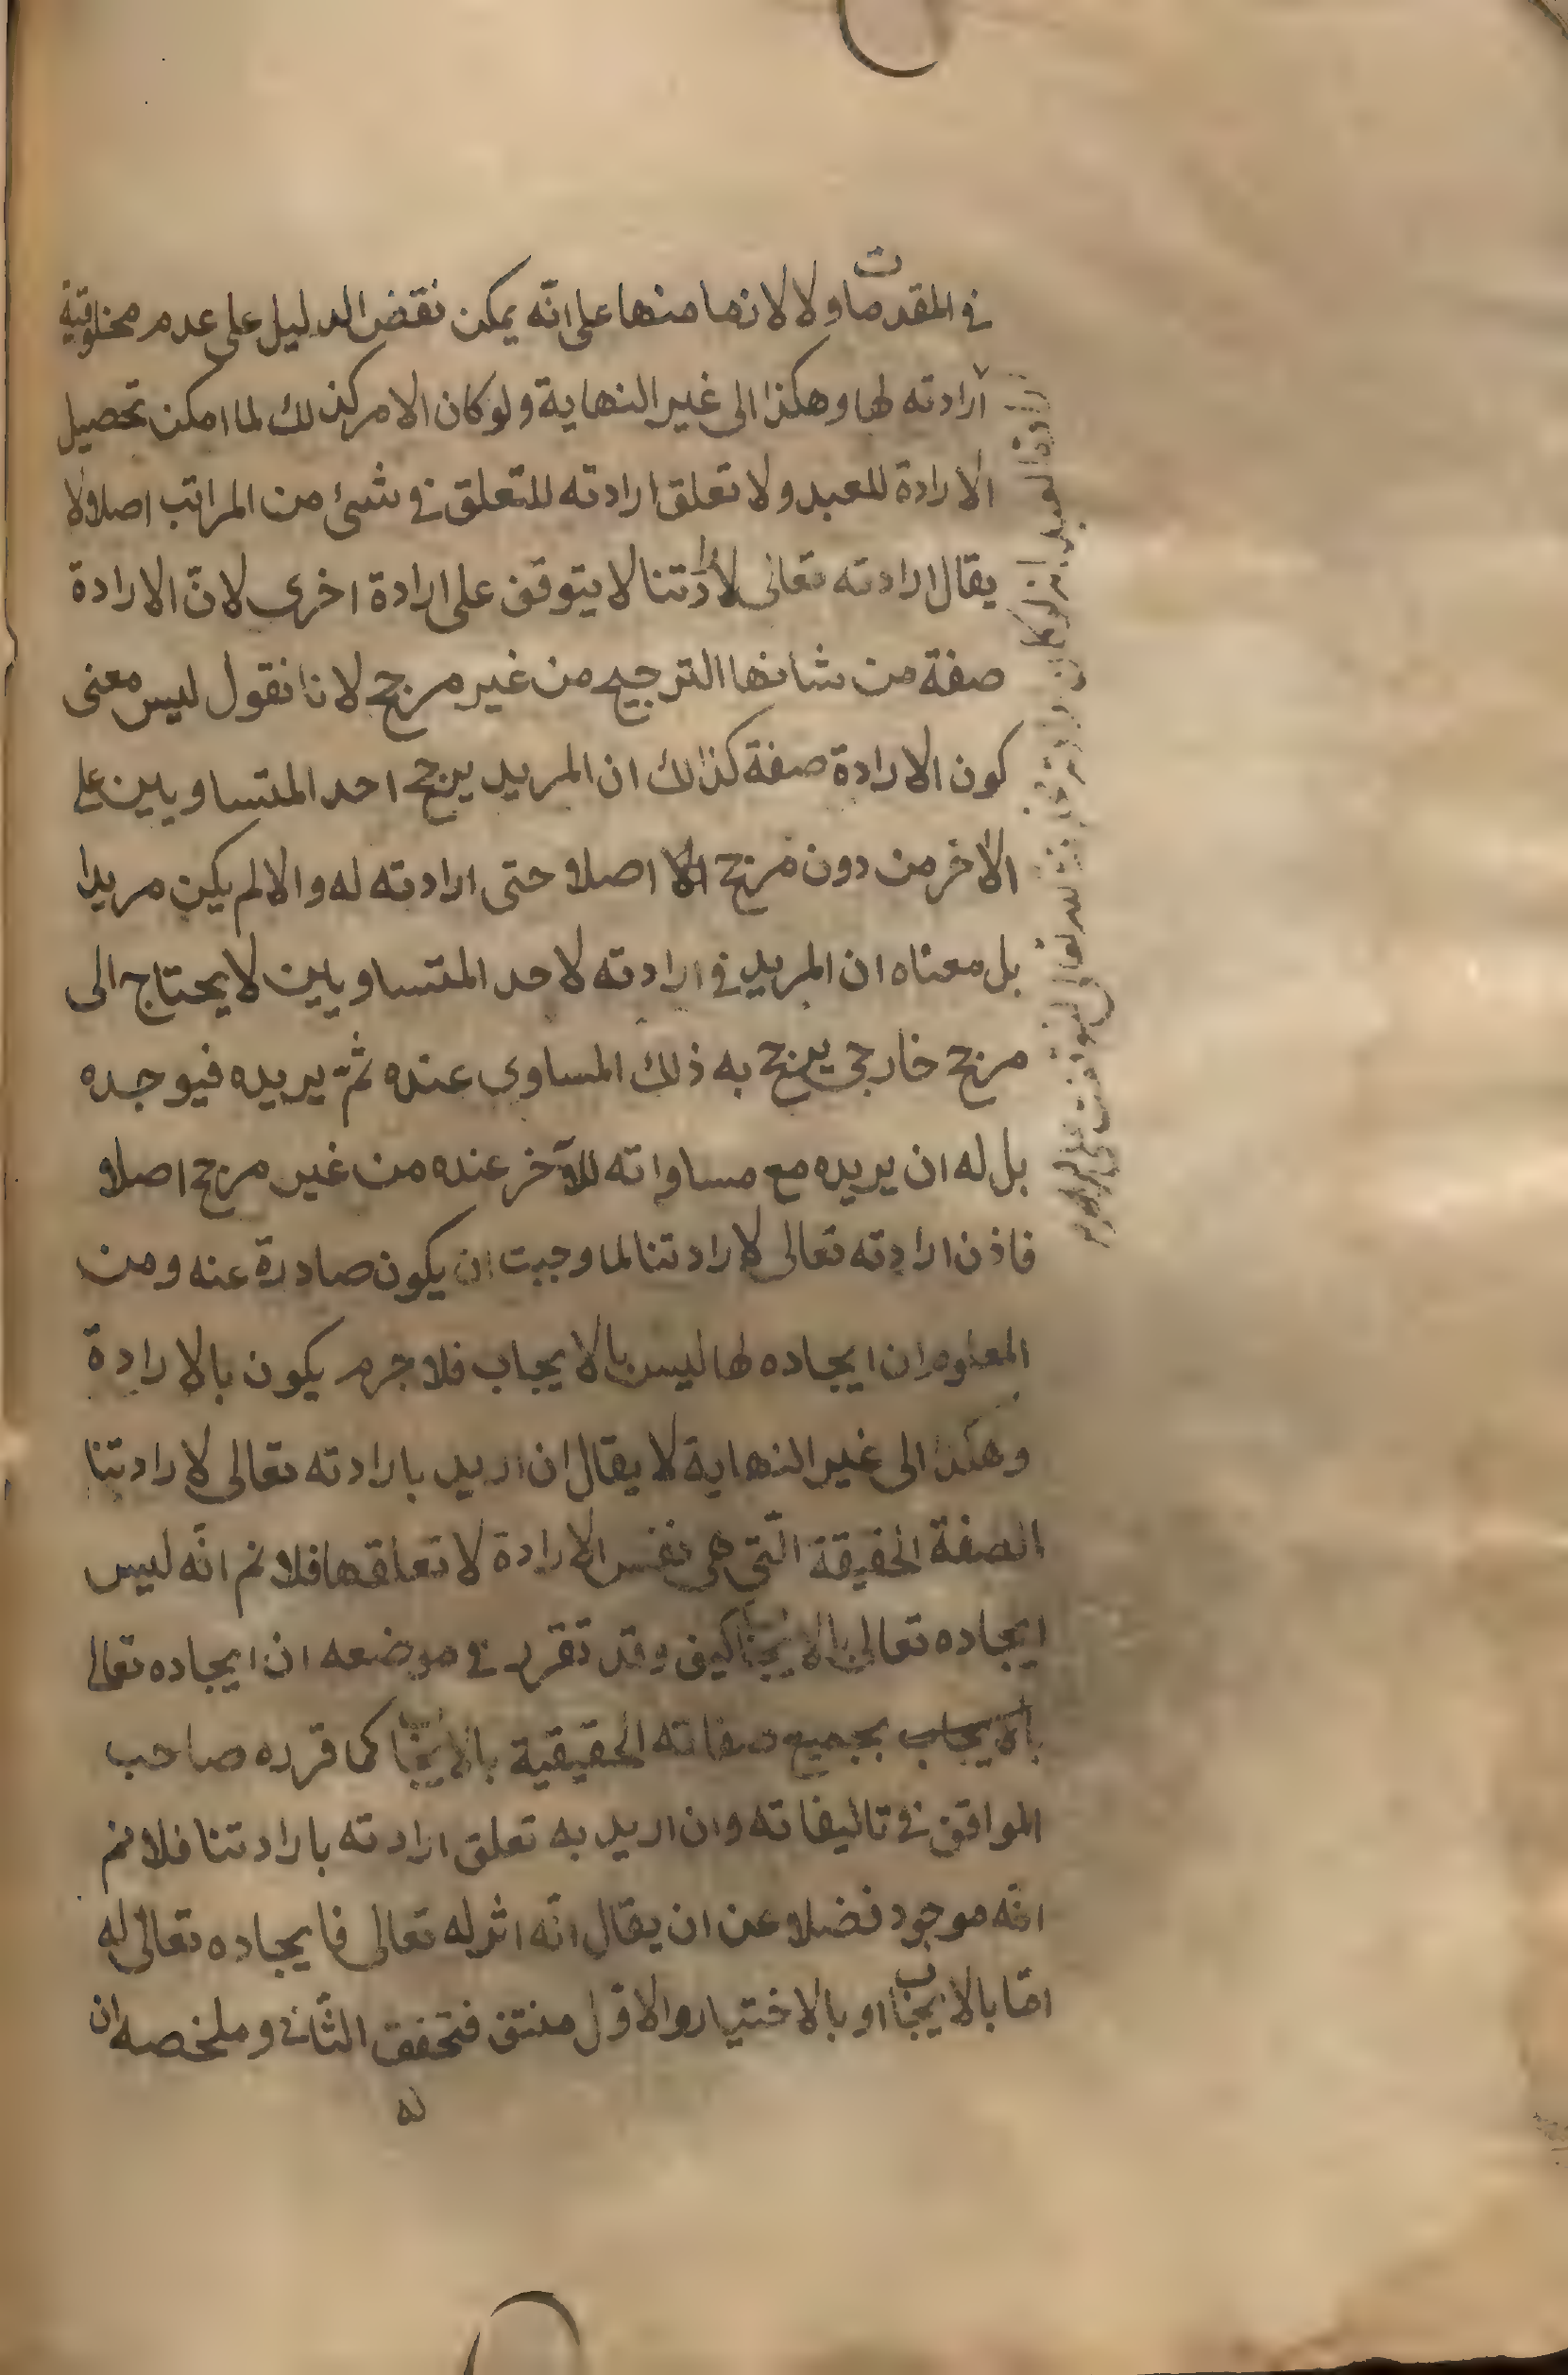 في المقدمات ولا لانها منها على انّه يمكن نقض الدليل على عدم مخلوقية
ارادته لها وهكذا الى غير النهاية ولو كان الامر كذلك لما امكن تحصيل
الارادة للعبد ولا تعلق ارادته للتعلق في شئ من المراتب اصلا ولا
يقال ارادته تعالى لارادتنا لا يتوقف على ارادة اخرى لانّ الارادة
صفة من شانها الترجيح من غير مرجح لانا نقول ليس معنى
كون الارادة صفة كذلك ان المريد يرجح احد المتساويين على
الاخر من دون مرجح اصلا حتى ارادته له والا لم يكن مريدا
بل معناه ان المريد في ارادته لاحد المتساويين لا يحتاج الى
مرجح خارجي يرجح به ذلك المساوى عنده ثمّ يريده فيوجده
بل له ان يريده مع مساواته للآخر عنده من غير مرجح اصلا و
فاذن ارادته تعالى لارادتنا لما وجبت ان يكون صادرة عنه ومن
المعلوم ان ايجاده لها ليس بالايجاب فلا جرم يكون بالارادة
وهكذا الى غير النهاية لا يقال ان اريد بارادته تعالى لارادتنا
الصفة الحقيقة الّتي هي نفس الارادة لا تعلقها فلا نم انّه ليس
ايجاده تعالى بالايجاب كيف وقد تقرر في موضعه ان ايجاده تعالى
بالايجاب بجميع صفاته الحقيقية بالايجاب كما قرره صاحب
المواقف في تاليفاته وان اريد به تعلق ارادته بارادتنا فلا نم
انّه موجود فضلا عن ان يقال انّه اثر له تعالى فايجاده تعالى له
امّا بالايجاب او بالاختيار والاوّل منتف فتحقق الثّاني وملخصه ان
له
ارادة العبد لو كان تعالى لتوقفت على